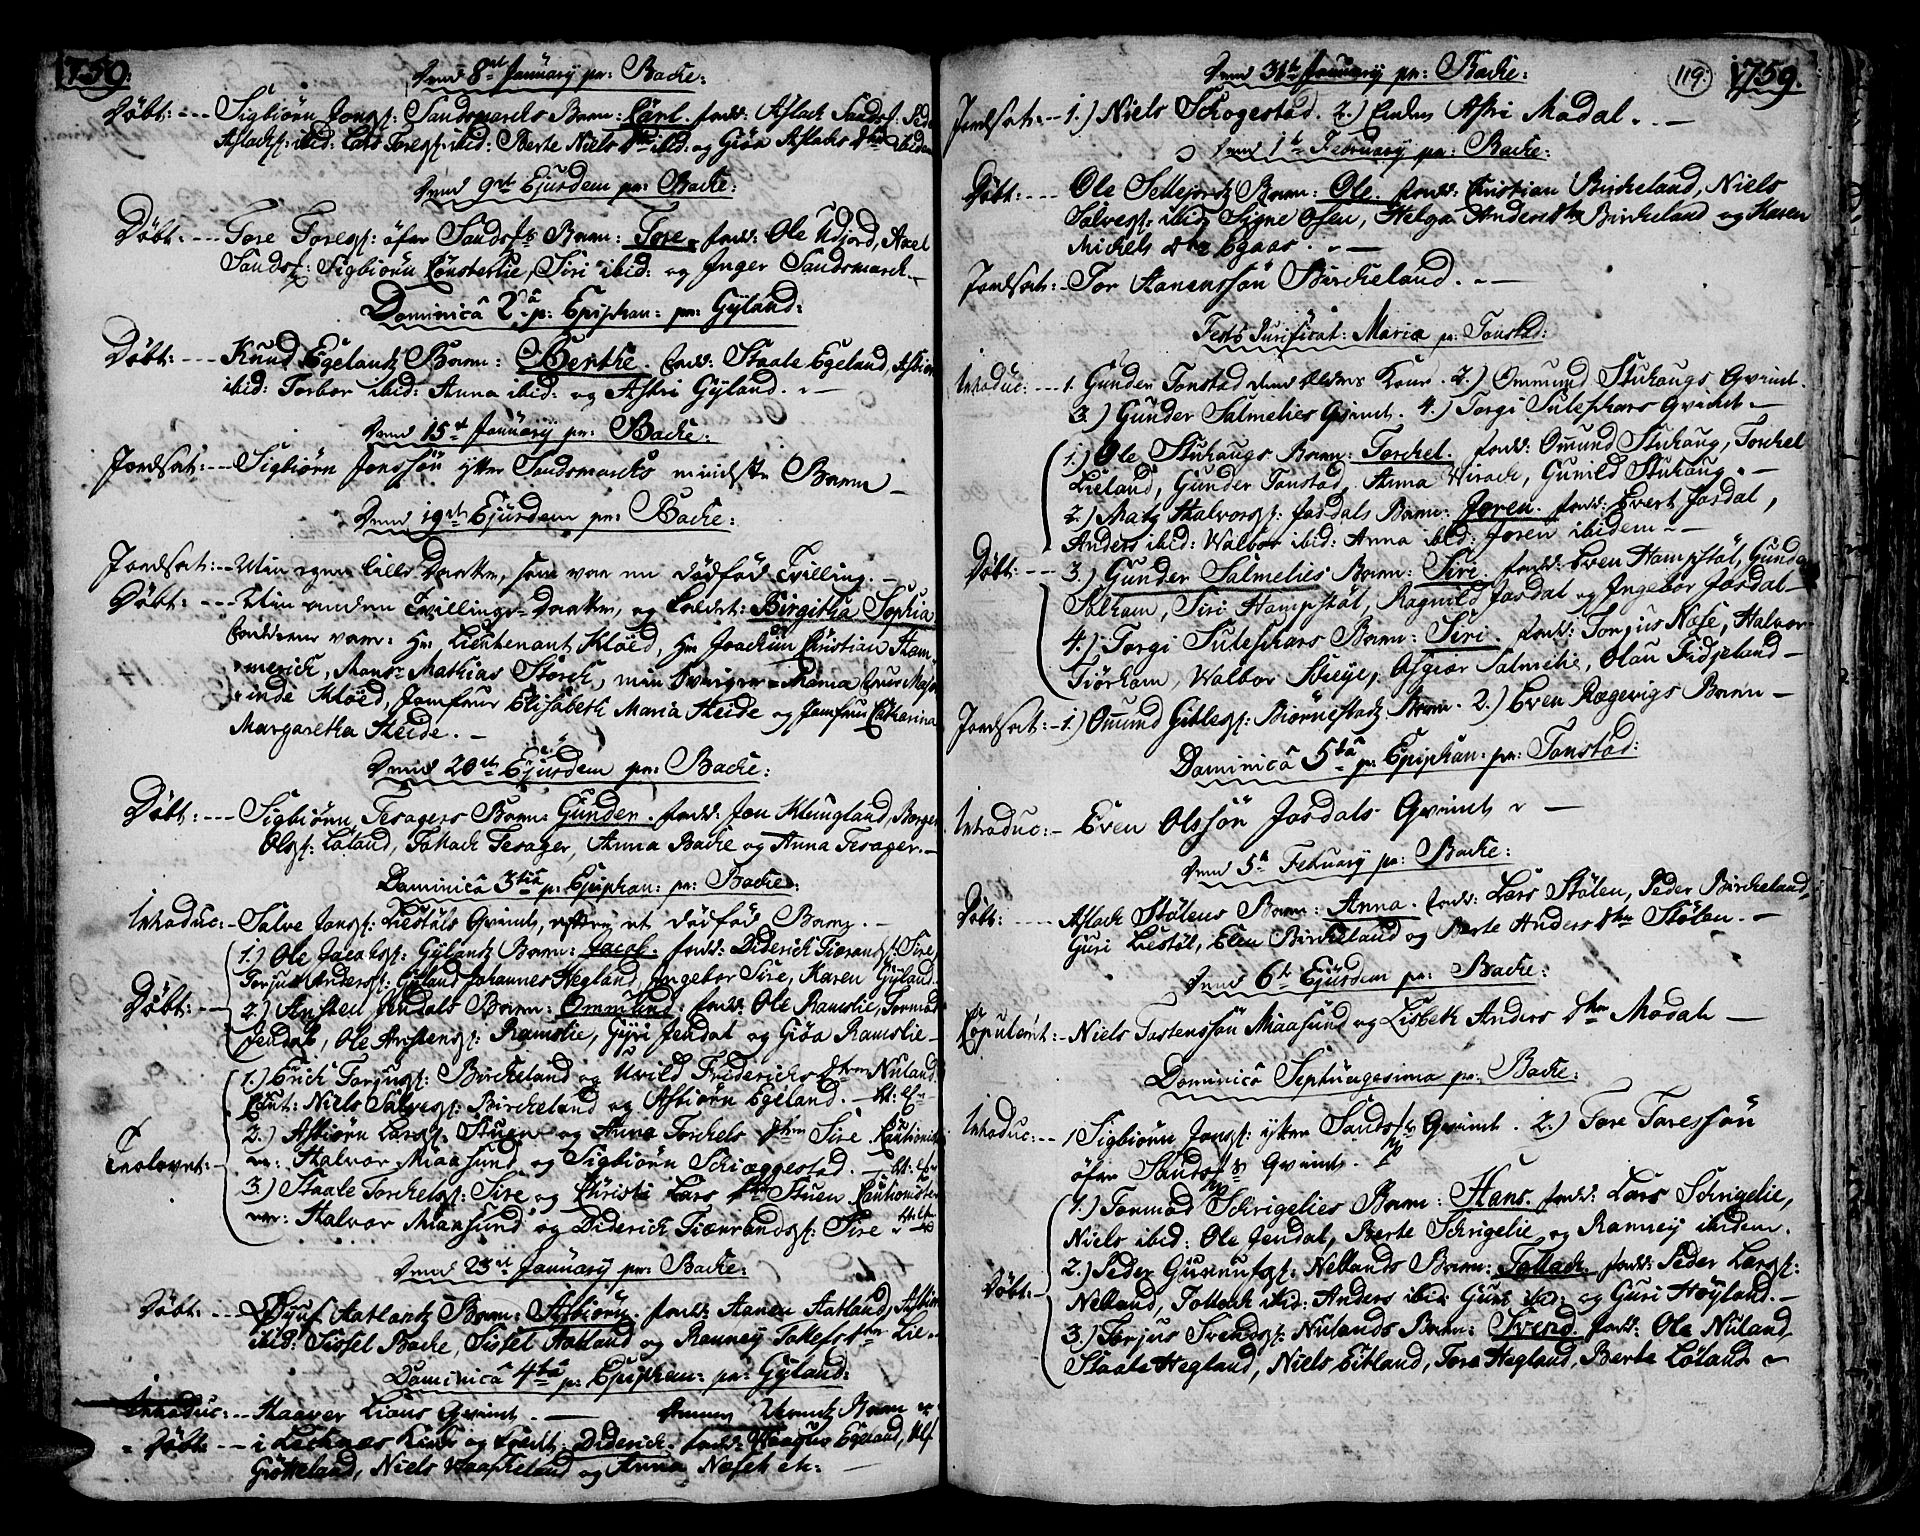 1759.
Dend 8de Januarij paa Backe:
Døbt: --- Sigbiörn Jons: Sandsmarcks Barn: Carl. fadd: Aslach Sands: Peder
Aslachs: ibid: Lars Tores: ibid: Berte Niels Dtr ibid: og Giöa Aslachs Dtr ibidem
Dend 9de Ejusdem paa Backe:
Døbt: --- Tore Tores: öfre Sands: Barn: Tore. fadd: Ole Udjord, Axel
Sands: Sigbiörn Lönsterlie, Siri ibid: og Inger Sandsmarck
Dominicâ 2dâ p: Epiphan: paa Gÿland:
Døbt: --- Knud Egelands Barn: Berthe. fadd: Staale Egeland, Asbiörn
ibid: Torbor ibid: Anna ibid: og Astri Gÿland. -
Dend 15de Januarij paa Backe:
Jordsat: -- Sigbiörn Jonssön ytter Sandsmarcks mindste Barn -
Dend 19de Ejusdem paa Backe:
Jordsat: -- Min egen lille Daatter, som var en dödföd Tvilling. -
Døbt: --- Min anden Tvillings-Daatter, og kaldet: Birgitha Sophia
fadderne vare: Hr Lieutenant Klöed, Hr Joachim Christian Stem-
merich, Mons: Mathias Storch, min Svigger-Mama
Klöed, Jomfrue Elisabeth Maria Heide og Jomfru Catharina
Margaretha Heide. -
Dend 20de Ejusdem paa Backe:
Døbt: --- Sigbiörn Tesagers Barn: Gunder. fadd: Jon Klungland, Börge
Ols: Löland, Tollach Tesager, Anna Backe og Anna Tesager. -
Dominicâ 3tiâ p: Epiphan: paa Backe:
Introduc: - Salve Jons: Liestöls Qvinde, efter et dödföd Barn. -
1.) Ole Jacobs: Gÿlands Barn: Jacob. fadd: Diderich Tiörands: Sire
Torjus Anders: Gÿland Johannes Hegland, Ingebor Sire, Karen Gÿland.
Døbt: -- 2.) Austen Jendals Barn: Ommund. fadd: Ole Ramslie, Tormod
Jendal, Ole Austens: Ramslie, Gÿri Jendal og Giöa Ramslie -
1.) Erich Torjus: Birckeland og Uvild Friderichs Dtr Nuland
Caut: Niels Salves: Birckeland og Asbiörn Egeland. -
2.) Asbiörn Lars: Stuen og Anna Torchels Dtr Sire
Trolovet: - Halvor Miaasund og Sigbiörn Schiæggestad. -
3.) Staale Torchels: Sire og Christi Lars Dtr Stuen Cautionister
var: Halvor Miaasund og Diderich Tiörands: Sire
Dend 23de Januarij paa Backe:
Døbt: --- Sjuf Aatlands Barn: Asbiörn. fadd: Aanen Aatland, Asbiörn
ibid: Sissel Backe, Sissel Aatland og Rannej Tollefs Dtr Lie-
Dominicâ 4tâ p: Epiphan: paa Gÿland:
Introduc: -- Haaver Lians Qvinde. -
Døbt: -- i Lechnes Kirke og kaldt: Diderich. fadd: Egeland,
Grötteland, Niels Haacheland og Anna Neseth etc: -
119.
1759.
Dend 31te Januarij paa Backe:
Jordsat: -- 1.) Niels Schogestad. 2.) Enken Astri Modal. -
Dend 1te Februarij paa Backe:
Døbt: --- Ole Sellejords Barn: Ole. fadd: Christian Birckeland, Niels
Salves: ibid: Signe Osen, Helga Anders Dtr Birckeland og Karen
Michels Dtr Egaas. -
Jordsat: - Tor Aanenssön Birckeland. -
Festo Purificat: Mariæ paa Tonstad:
Introduc: --- 1. Gunder Tonstad den Eldres Kone. 2.) Ommund Stuhougs Qvinde.
3.) Gunder Salmelies Qvinde. 4.) Torgi Sulesphars Qvinde -
1.) Ole Stuhougs Barn: Torchel. fadd: Omund Stuhoug, Torchel
Lieland, Gunder Tonstad, Anna Virach, Gunild Stuhoug. -
2.) Matz Halvors: Josdals Barn: Joren. fadd: Evert Josdal,
Anders ibid: Walbor ibid: Anna ibid: Joren ibidem -
Døbt: --- 3.) Gunder Salmelies Barn: Siri. fadd: Even Hompstöl, Gunder
Solhom, Siri Hompstöl, Ragnild Josdal og Ingebor Josdal -
4.) Torgi Sulesphars Barn: Siri. fadd: Torjus Nese, Halvor
Tiörhom, Walbor Stueje, Asgier Salmelie, Olau Fidjeland -
Jordsat: - 1.) Omund Gitles: Biörnestads Barn. 2.) Even Rægevigs Barn -
Dominicâ 5tâ p: Epiphan: paa Tonstad:
Introduc: - Even Olssön Josdals Qvinde -
Dend 5te Februarij paa Backe:
Døbt: --- Aslach Stölens Barn: Anna. fadd: Lars Stölen, Peder Birckeland,
Guri Liestöl, Elen Birckeland og Berte Anders Dtr Stölen. -
Dend 6te Ejusdem paa Backe:
Copulerit: - Niels Tostenssön Miaasund og Lisbeth Anders Dtr Modal -
Dominicâ Septuagesima paa Backe:
Introduc: -- 1 Sigbiörn Jons: ytter Sands: Qvinde. 2.) Tore Toressön
öfre Sands: Qvinde.
1.) Tormod Schrigelies Barn: Hans. fadd: Lars Schrigelie,
Niels ibid: Ole Jendal, Berte Schrigelie og Rannej ibidem.
Døbt: - 2.) Peder Gunnufs: Netlands Barn: Tollach. fadd: Peder Lars:
Netland, Tollach ibid: Anders ibid: Guri ibid: og Guri Höyland. -
3.) Torjus Svends: Nulands Barn: Svend. fadd: Ole Nuland
Staale Hegland, Niels Eitland, Tore Hegland, Berte Löland -